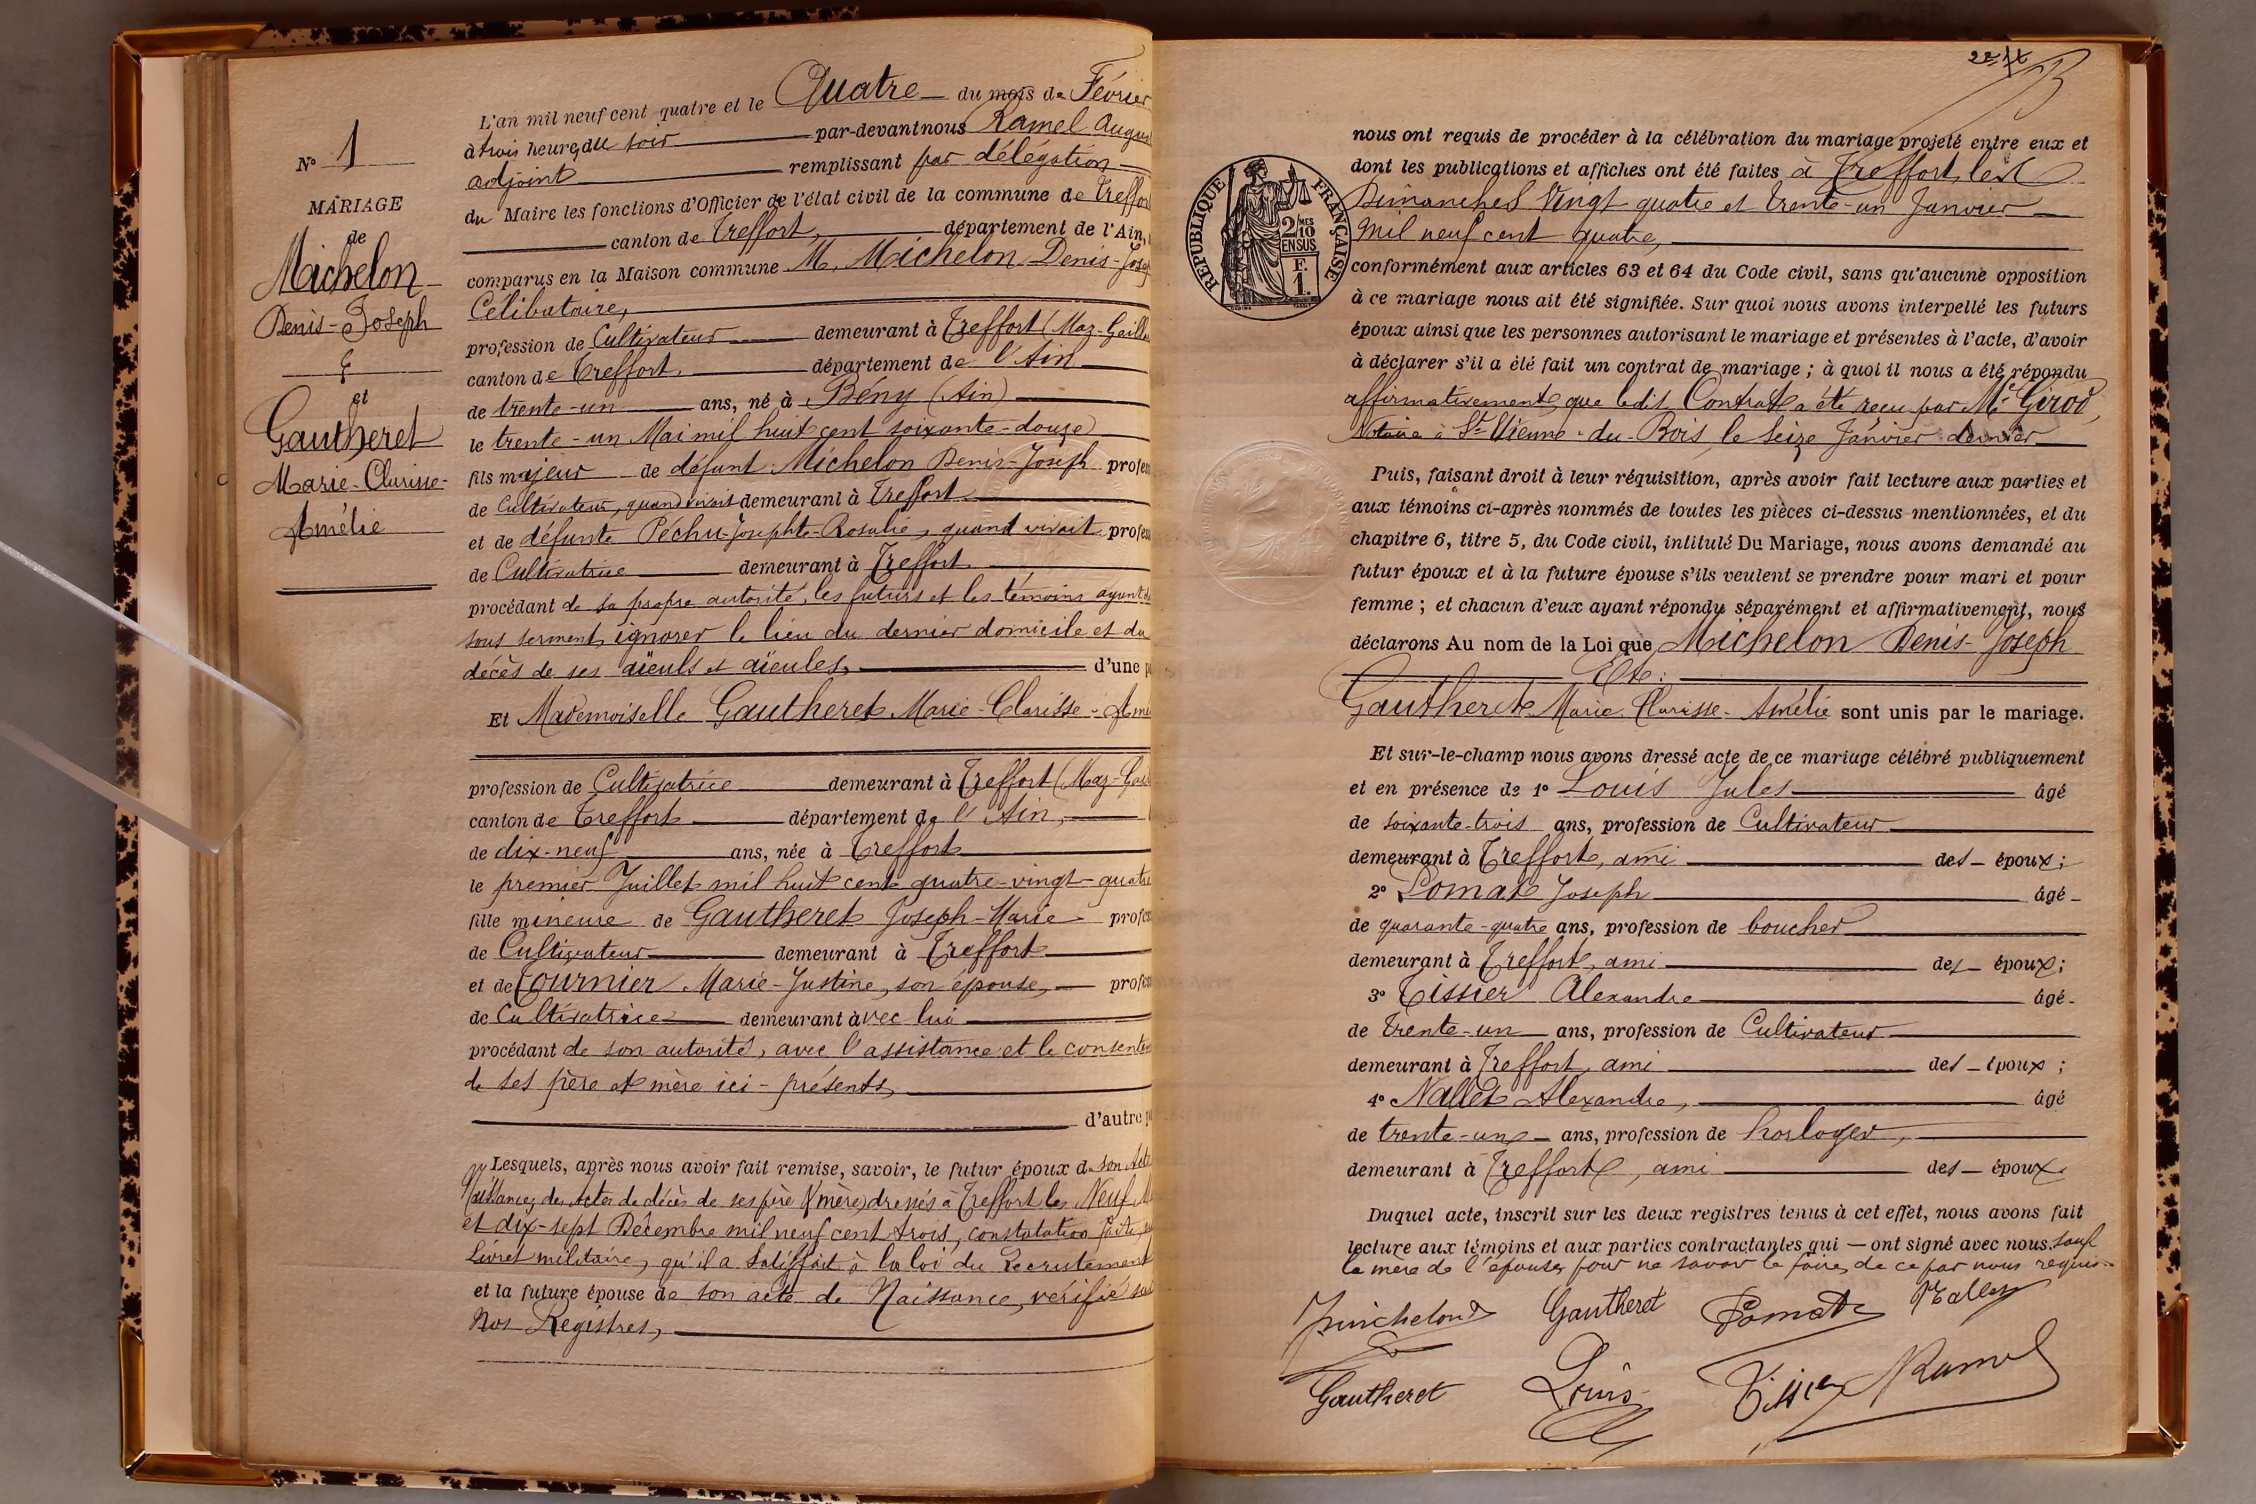 N° 1
MARIAGE
de
Michelon
Denis-Joseph
&
et
Gautheret
Marie-Clarisse-
Amélie
L'an mil neuf cent quatre et le Quatre du mois de Février
à trois heures du soir par-devant nous Ramel August
adjoint remplissant par délégation
du Maire les fonctions d'Officier de l'état civil de la commune de Treffort
canton de Treffort, département de l'Ain,
comparus en la Maison commune M. Michelon Denis-Josep
Célibataire,
profession de Cultivateur demeurant à Treffort (Maz-Gaill
canton de Treffort, département de l'Ain
de trente-un ans, né à Bény (Ain)
le trente-un Mai mil huit cent soixante-douze
fils majeur de défunt Michelon Denis-Joseph profes
de Cultivateur, quand vivait demeurant à Treffort
et de défunte Péchu Josephte-Rosalie, quand vivait profes
de Cultivatrice demeurant à Treffort
procédant de sa propre autorité, les futurs et les témoins ayant
sous serment, ignorer le lieu du dernier domicile et du
décès de ses aïeuls et aïeules, d'une p
Et Mademoiselle Gautheret Marie-Clarisse-Amé
profession de Cultivatrice demeurant à Treffort (Maz-Gail
canton de Treffort département de l'Ain,
de dix-neuf ans, née à Treffort
le premier Juillet mil huit cent quatre-vingt-quatre
fille mineure de Gautheret Joseph-Marie profes
de Cultivateur demeurant à Treffort
et de Tournier Marie-Justine, son épouse, profes
de Cultivatrice demeurant avec lui
procédant de son autorité, avec l'assistance et le consente
de ses père et mère ici-présents,
d'autre p
Lesquels, après nous avoir fait remise, savoir, le futur époux de son Acte
Naissance, des actes de décès de ses père & mère, dressés à Treffort les Neuf
et dix-sept Décembre mil neuf cent trois, constatation faite,
Livret militaire, qu'il a satisfait à la loi du Recrutement
et la future épouse de son acte de Naissance, vérifié sur
nos Registres,
REPUBLIQUE FRANÇAISE
2/10MES
EN SUS
F.
1.
nous ont requis de procéder à la célébration du mariage projeté entre eux et
dont les publications et affiches ont été faites à Treffort, les
Dimanches Vingt quatre et trente-un Janvier
mil neuf cent quatre,
conformément aux articles 63 et 64 du Code civil, sans qu'aucune opposition
à ce mariage nous ait été signifiée. Sur quoi nous avons interpellé les futurs
époux ainsi que les personnes autorisant le mariage et présentes à l'acte, d'avoir
à déclarer s'il a été fait un contrat de mariage ; à quoi il nous a été répondu
affirmativement, que ledit Contrat a été reçu par Me Girod,
Notaire à St Etienne-du-Bois, le Seize Janvier dernier
Puis, faisant droit à leur réquisition, après avoir fait lecture aux parties et
aux témoins ci-après nommés de toutes les pièces ci-dessus mentionnées, et du
chapitre 6, titre 5, du Code civil, intitulé Du Mariage, nous avons demandé au
futur époux et à la future épouse s'ils veulent se prendre pour mari et pour
femme ; et chacun d'eux ayant répondu séparément et affirmativement, nous
déclarons Au nom de la Loi que Michelon Denis-Joseph
Et :
Gautheret Marie-Clarisse-Amélie sont unis par le mariage.
Et sur-le-champ nous avons dressé acte de ce mariage célébré publiquement
et en présence de 1° Louis Jules âgé
de soixante-trois ans, profession de Cultivateur
demeurant à Treffort, ami des époux ;
2° Pomat Joseph âgé
de quarante-quatre ans, profession de boucher
demeurant à Treffort, ami des époux ;
3° Tissier Alexandre âgé
de Trente-un ans, profession de Cultivateur
demeurant à Treffort, ami des époux ;
4° Nallet Alexandre, âgé
de trente-un ans, profession de horloger,
demeurant à Treffort, ami des époux.
Duquel acte, inscrit sur les deux registres tenus à cet effet, nous avons fait
lecture aux témoins et aux parties contractantes qui ont signé avec nous sauf
la mère de l'épouse, pour ne savoir le faire, de ce par nous requis.
Michelon Gautheret Pomat Nallet
Gautheret Louis Tissier Ramel